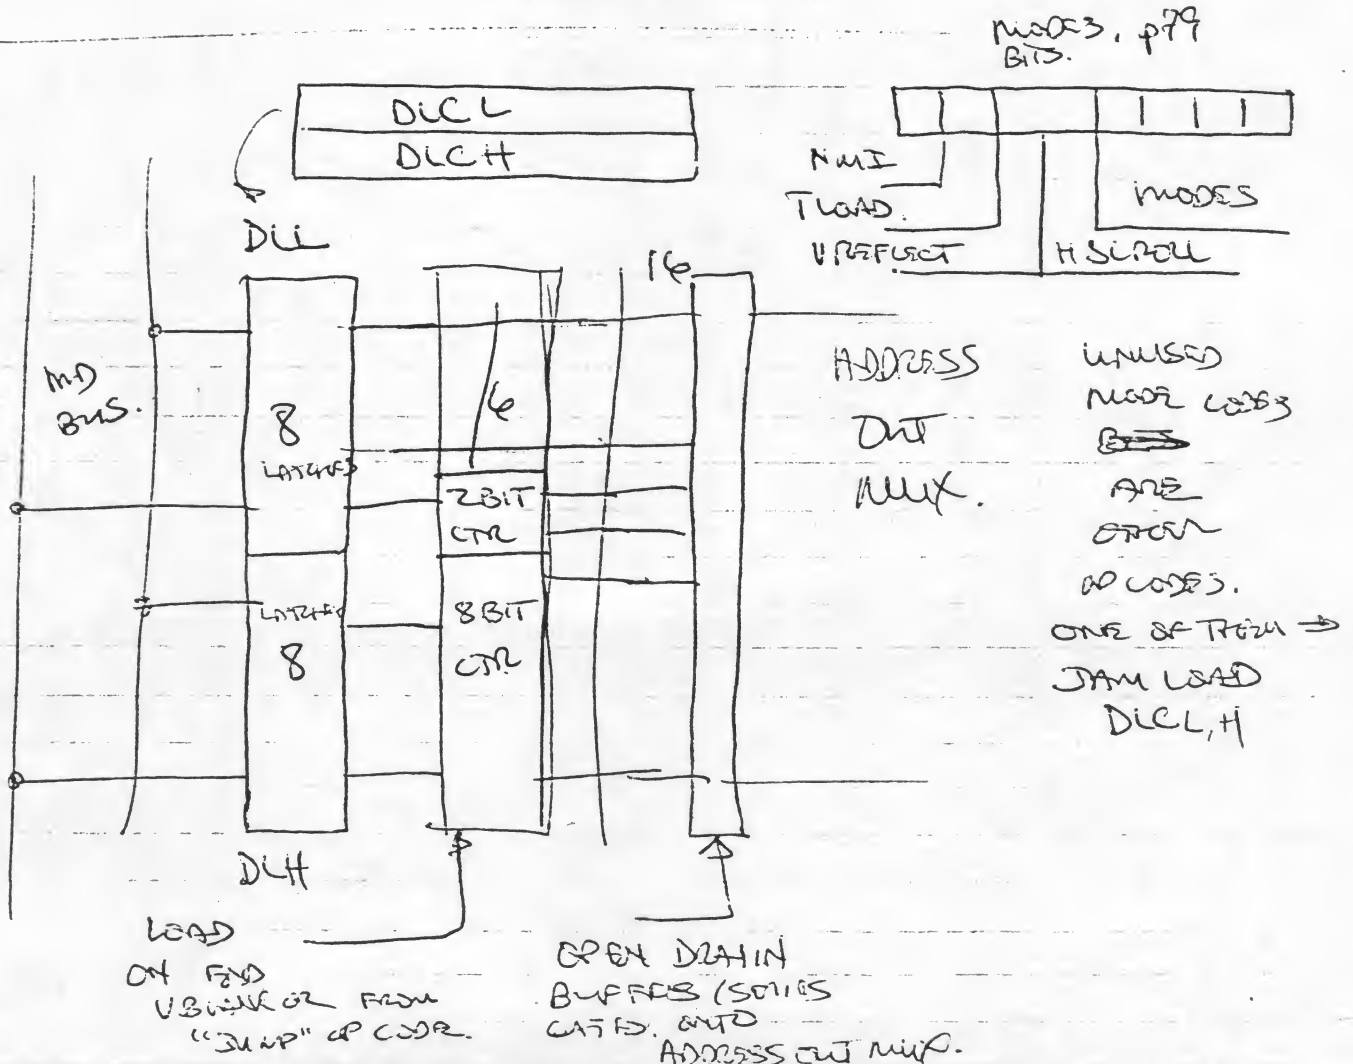 MODES, p79
BITS.
DLCL
DLCH
DLL
NMI
TLOAD.
VREFLECT
HSCROLL
MODES
MD
BUS.
8
LATCHES
6
2 BIT
CTR
16
ADDRESS
OUT
MUX.
LATCHES
8
8 BIT
CTR
UNUSED
MODE CODES
ARE
OTHER
OP CODES.
ONE OF THEM →
JAM LOAD
DLCL, H
DLH
LOAD
ON END
VBLANK OR FROM
"JUMP" OP CODE.
OPEN DRAIN
BUFFERS / SERIES
GATED. ONTO
ADDRESS OUT MUX.